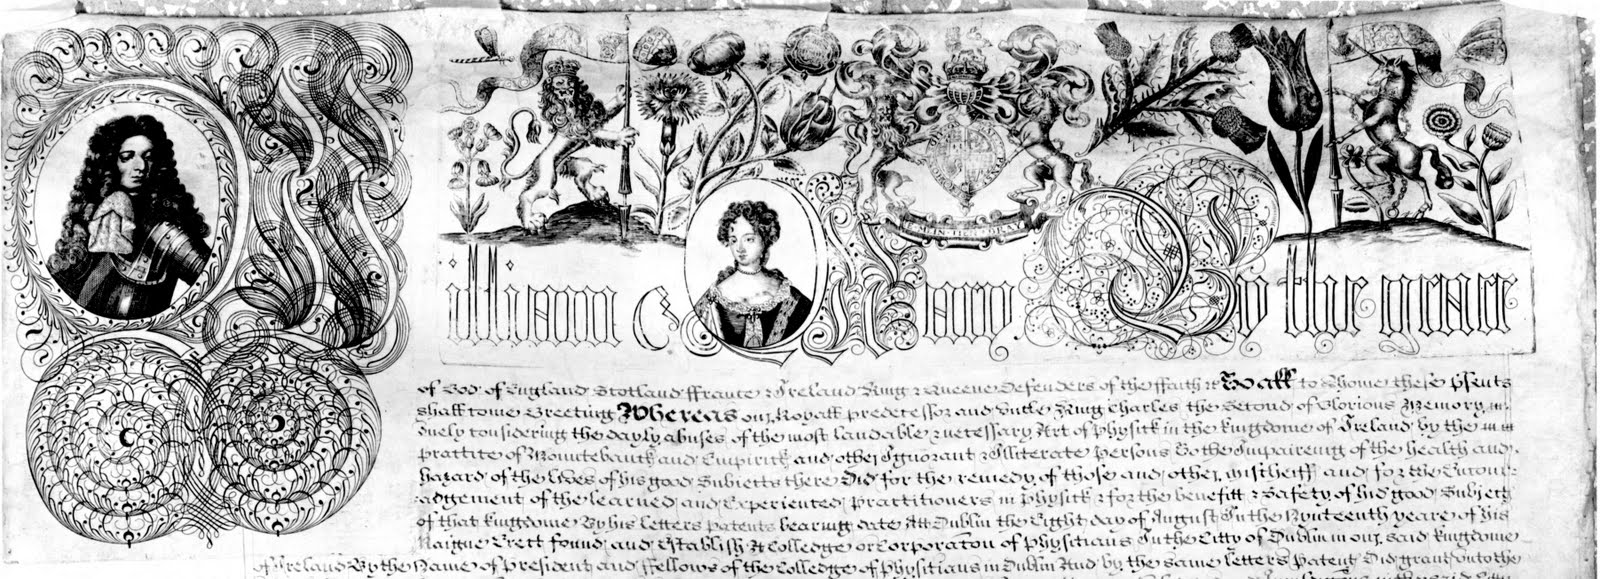 William & Mary By the grace
of God of England Scotland ffrance & Ireland King & Queene Defenders of the ffaith &c To all to whome these p̄sents
shall come Greeting Whereas our Royall predecessor and Uncle King Charles the Second of Glorious Memory
duely considering the dayly abuses of the most laudable & necessary Art of Physick in the Kingdome of Ireland by the
practice of Mountebanck and Empiricks and other Ignorant & Illiterate Persons To the Impaireing of the health and
hazard of the lives of his good Subjects there Did for the remedy of those and other mischeiffs and for the Encour-
adgement of the learned and Experienced practitioners in physick & for the benefitt & Safety of his good Subjects
of that Kingdome By his letters patents bearing date Att Dublin the Eight day of August In the Nynteenth yeare of his
Raigne Erect found and Establish A Colledge or Corporacon of Physitians In the Citty of Dublin in our said Kingdome
of Ireland By the Name of President and Fellows of the Colledge of Physitians in Dublin And by the same letters Patent Did grant to the